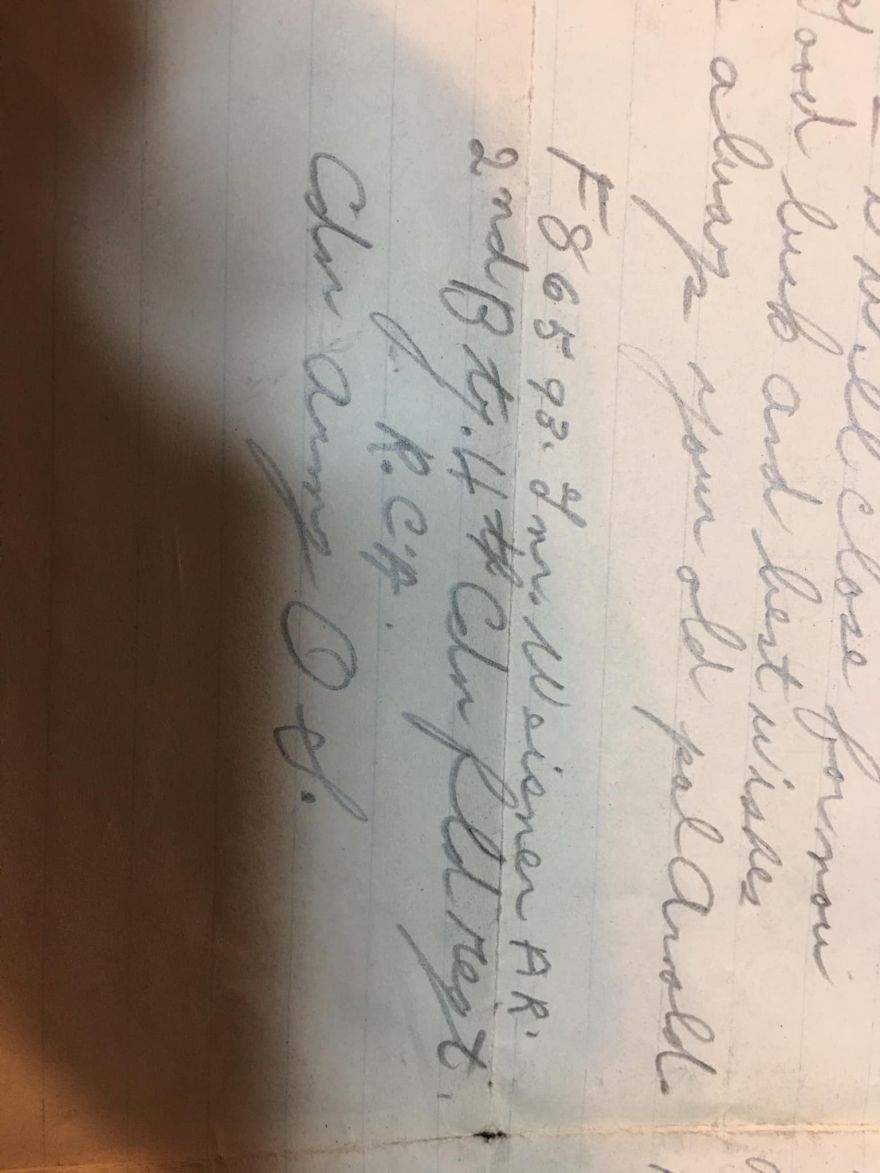 I will close for now
Good luck and best wishes
always your old pal Arnold.
F86593. Gnr. Weisner A R.
2nd Bty. 4th Cdn fld regt.
R.C.A.
Cdn army O S.